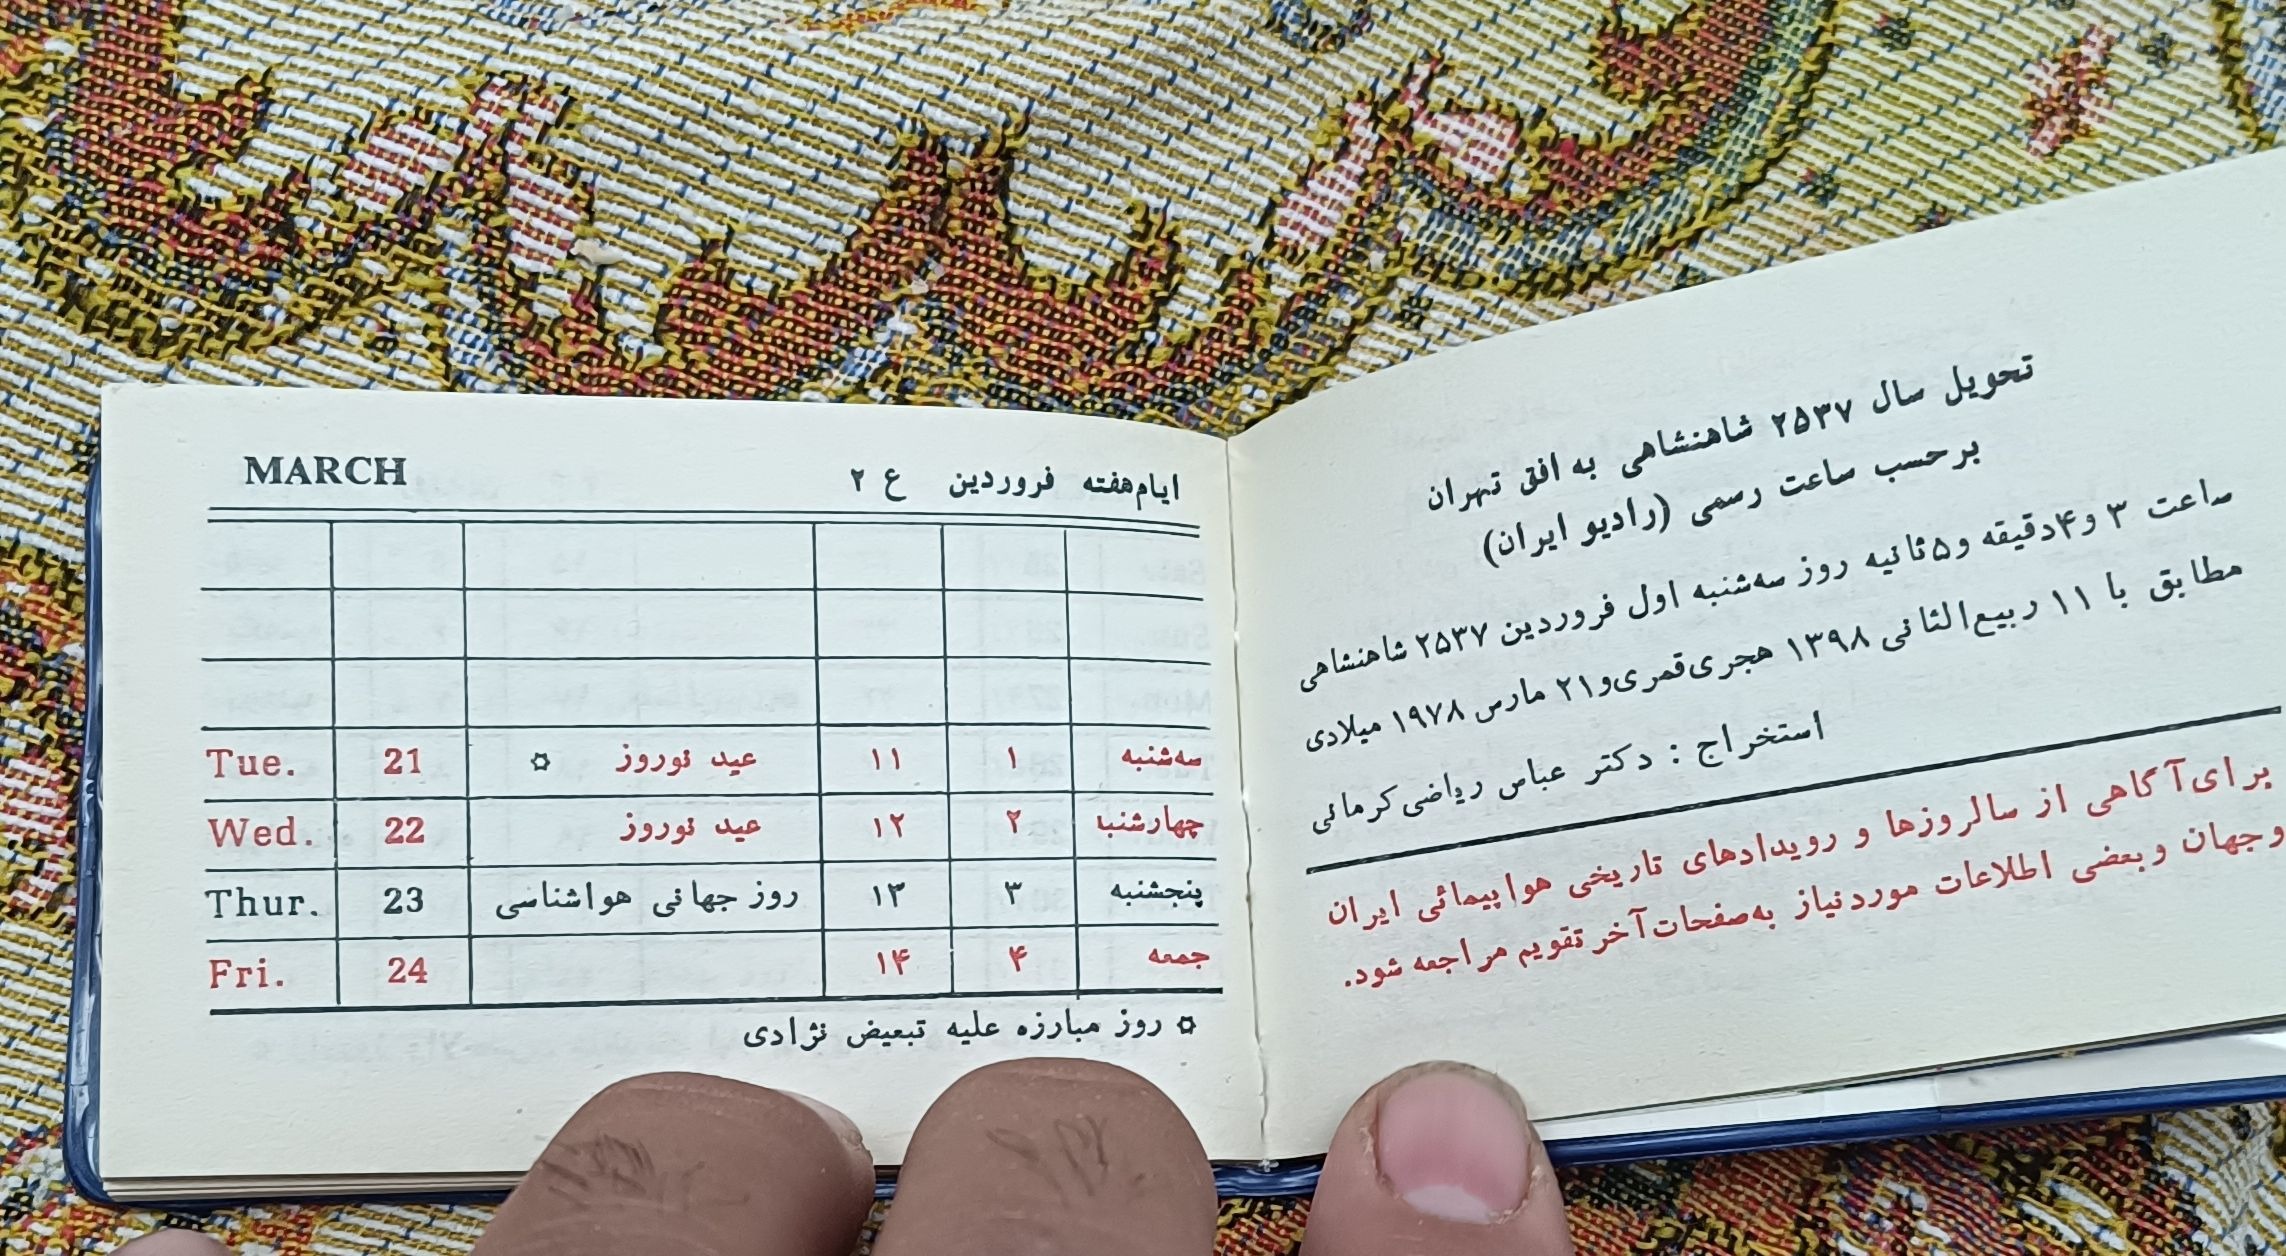 تحویل سال ۲۵۳۷ شاهنشاهی به افق تهران
برحسب ساعت رسمی (رادیو ایران)
ساعت ۳ و۴دقیقه و۵ثانیه روز سه‌شنبه اول فروردین ۲۵۳۷ شاهنشاهی
مطابق با ۱۱ ربیع‌الثانی ۱۳۹۸ هجری‌قمری‌و۲۱ مارس ۱۹۷۸ میلادی
استخراج : دکتر عباس ریاضی‌کرمانی
برای‌آگاهی از سالروزها و رویدادهای تاریخی هواپیمائی ایران
وجهان وبعضی اطلاعات موردنیاز به‌صفحات‌آخر تقویم مراجعه شود.
ایام‌هفته فروردین ع ۲ MARCH
سه‌شنبه ۱ ۱۱ عید نوروز ✡ 21 Tue.
چهارشنبه ۲ ۱۲ عید نوروز 22 Wed.
پنجشنبه ۳ ۱۳ روز جهانی هواشناسی 23 Thur.
جمعه ۴ ۱۴ 24 Fri.
✡ روز مبارزه علیه تبعیض نژادی